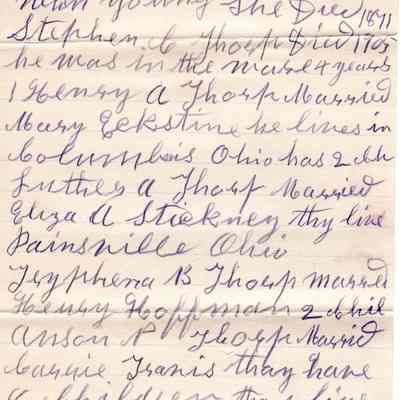 young she Died 1871
Stephen C Thorp Died 1905
he was in the ware 4 years
1 Henry A Thorp Married
Mary Eckstine he lives in
Columbis Ohio has 2 ch
Luther A Thorp Married
Eliza A Stickney thy live
Painsville Ohio
Tryphena B Thorp married
Henry Hoffman 2 Chil
Anson P Thorp Married
Carrie Travis thay have
Children they live